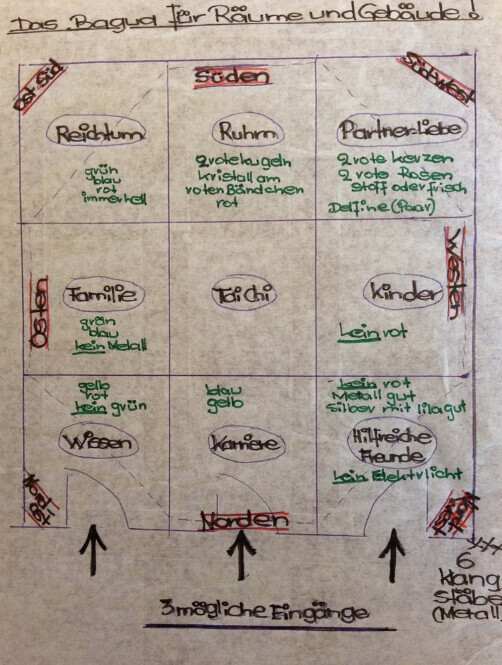 Das Bagua für Räume und Gebäude!
Ost-Süd
Süden
Südwest
Reichtum
Ruhm
Partner-Liebe
grün
blau
rot
immer hell
2 rote Kugeln
Kristall am
roten Bändchen
rot
2 rote Kerzen
2 rote Rosen
Stoff oder frisch
Delfine (Paar)
Osten
Westen
Familie
Tai Chi
Kinder
grün
blau
kein Metall
kein rot
gelb
rot
kein grün
blau
gelb
kein rot
Metall gut
Silber mit lila gut
Wissen
Karriere
Hilfreiche
Freunde
kein Elektrlicht
Norden
6
Klang
Stäbe
(Metall)
3 mögliche Eingänge